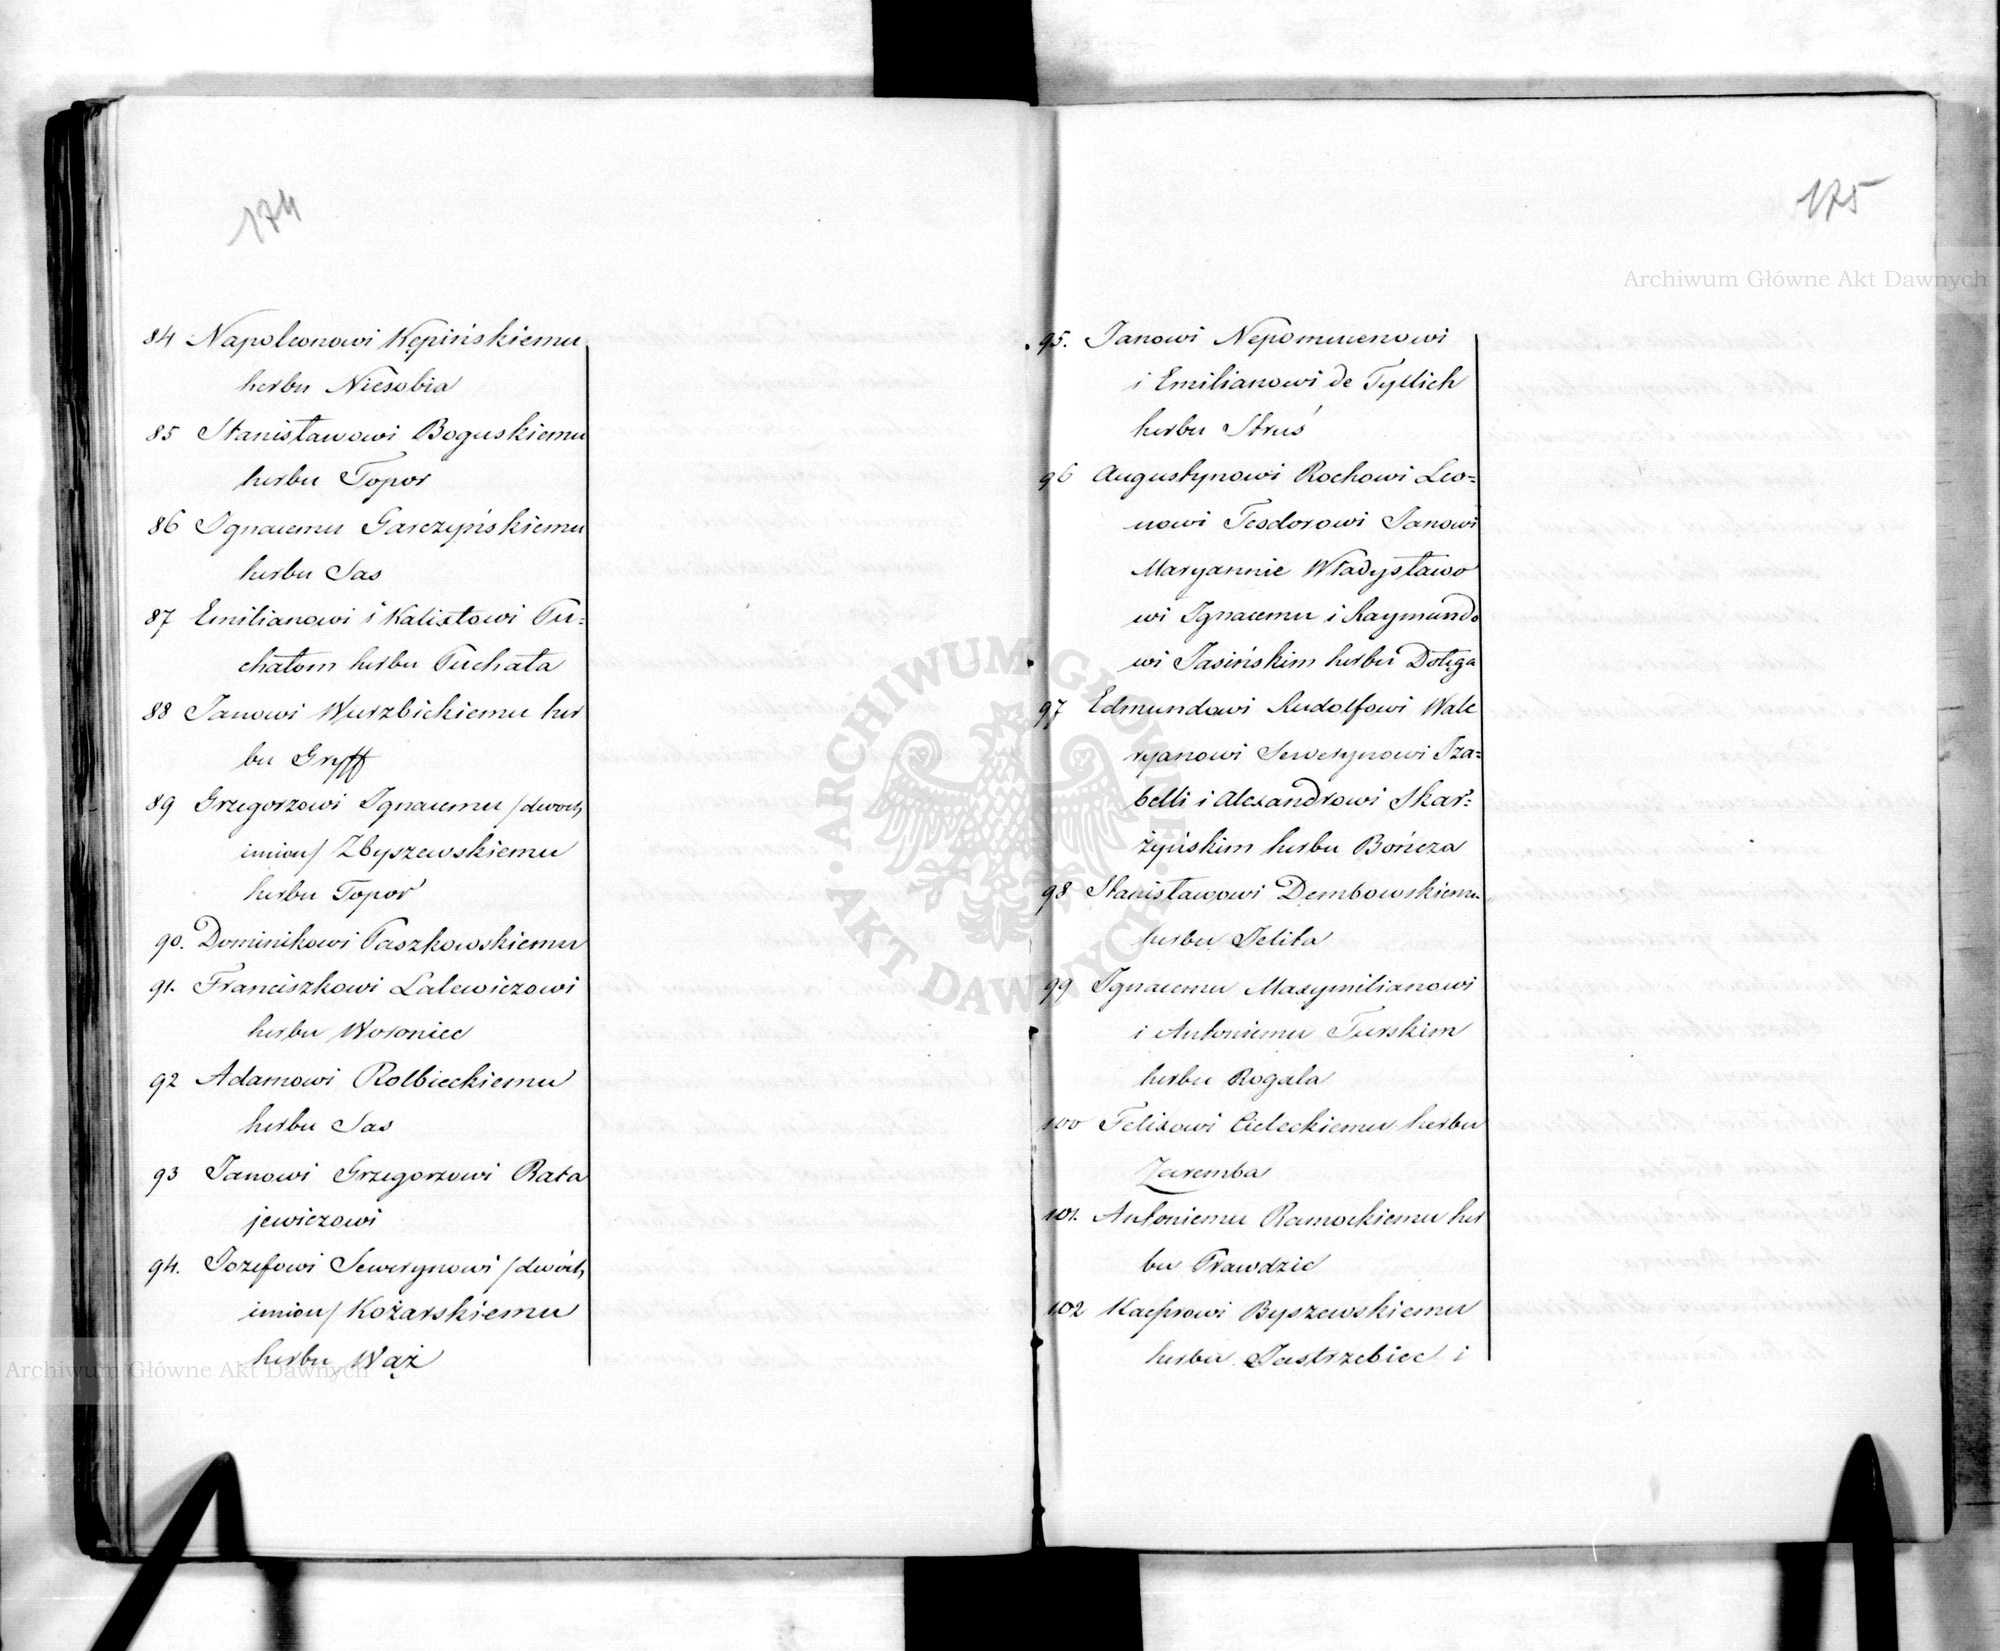 174
84 Napoleonowi Kępińskiemu
herbu Niesobia
85 Stanisławowi Boguskiemu
herbu Topor
86 Ignacemu Garczyńskiemu
herbu Sas
87 Emilianowi i Kalixtowi Pu=
chałom herbu Puchała
88 Janowi Wurzbickiemu her
bu Gryff
89 Grzegorzowi Ignacemu /dwoch
imion/ Zbyszewskiemu
herbu Topor
90. Dominikowi Paszkowskiemu
91. Franciszkowi Lalewiczowi
herbu Woroniec
92 Adamowi Rolbieckiemu
herbu Sas
93 Janowi Grzegorzowi Rata
jewiczowi
94. Jozefowi Sewerynowi /dwóch
imion/ Kożarskiemu
herbu Wąż
175
95. Janowi Nepomucenowi
i Emilianowi de Tyllich
herbu Struś
96 Augustynowi Rochowi Leo=
nowi Teodorowi Janowi
Maryannie Władysławo
wi Ignacemu i Raymundo
wi Jasińskim herbu Dołęga
97 Edmundowi Rudolfowi Wale
ryanowi Sewerynowi Iza=
belli i Alexandrowi Skar=
żyńskim herbu Bończa
98 Stanisławowi Dembowskiemu
herbu Jelita
99 Ignacemu Maxymilianowi
i Antoniemu Turskim
herbu Rogala
100 Felixowi Cieleckiemu herbu
Zaremba
101. Antoniemu Ramockiemu her
bu Prawdzic
102 Kacprowi Byszewskiemu
herbu Jastrzebiec i
Archiwum Główne Akt Dawnych
ARCHIWUM GŁÓWNE AKT DAWNYCH
Archiwum Główne Akt Dawnych